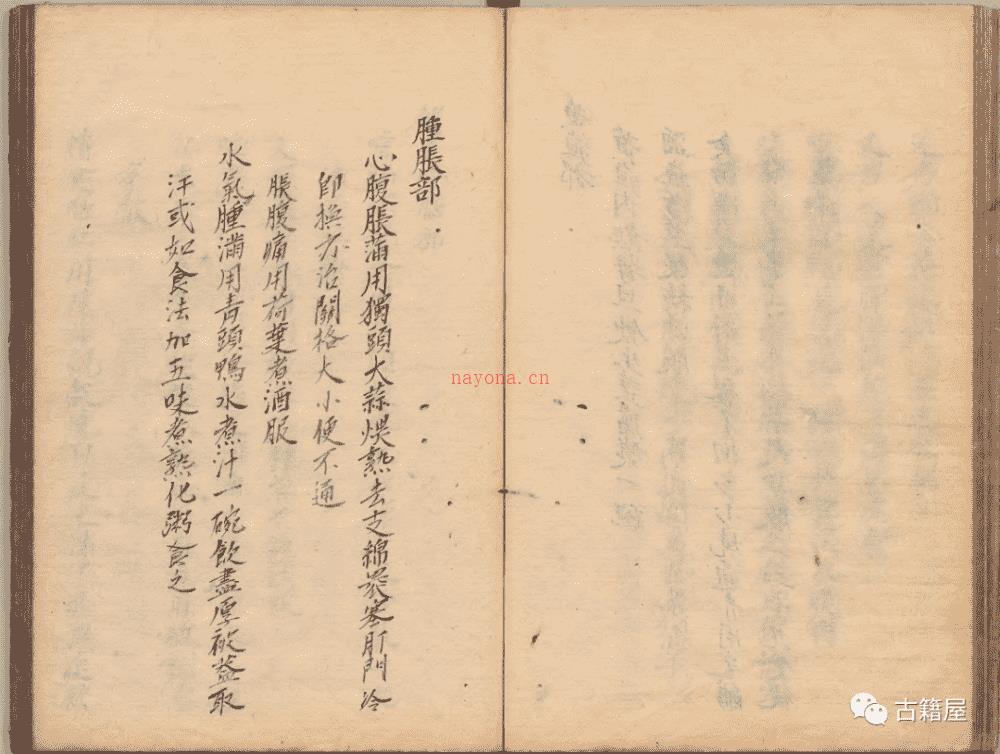 腫脹部
心腹脹蒲用獨頭大蒜煨熟去支綿裹塞肛門冷
即換亦治關格大小便不通
脹腹痛用荷葉煮酒服
水氣腫滿用青頭鴨水煮汁一碗飲盡厚被蓋取
汗或如食法加五味煮熟化粥食之
nayona.cn
古籍屋